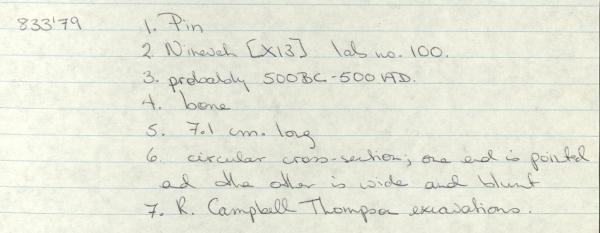 833'79 1. Pin
2. Nineveh [X13] lab no. 100.
3. probably 500BC-500AD.
4. bone
5. 7.1 cm. long
6. circular cross-section; one end is pointed
ad the other is wide and blunt
7. R. Campbell Thompson excavations.